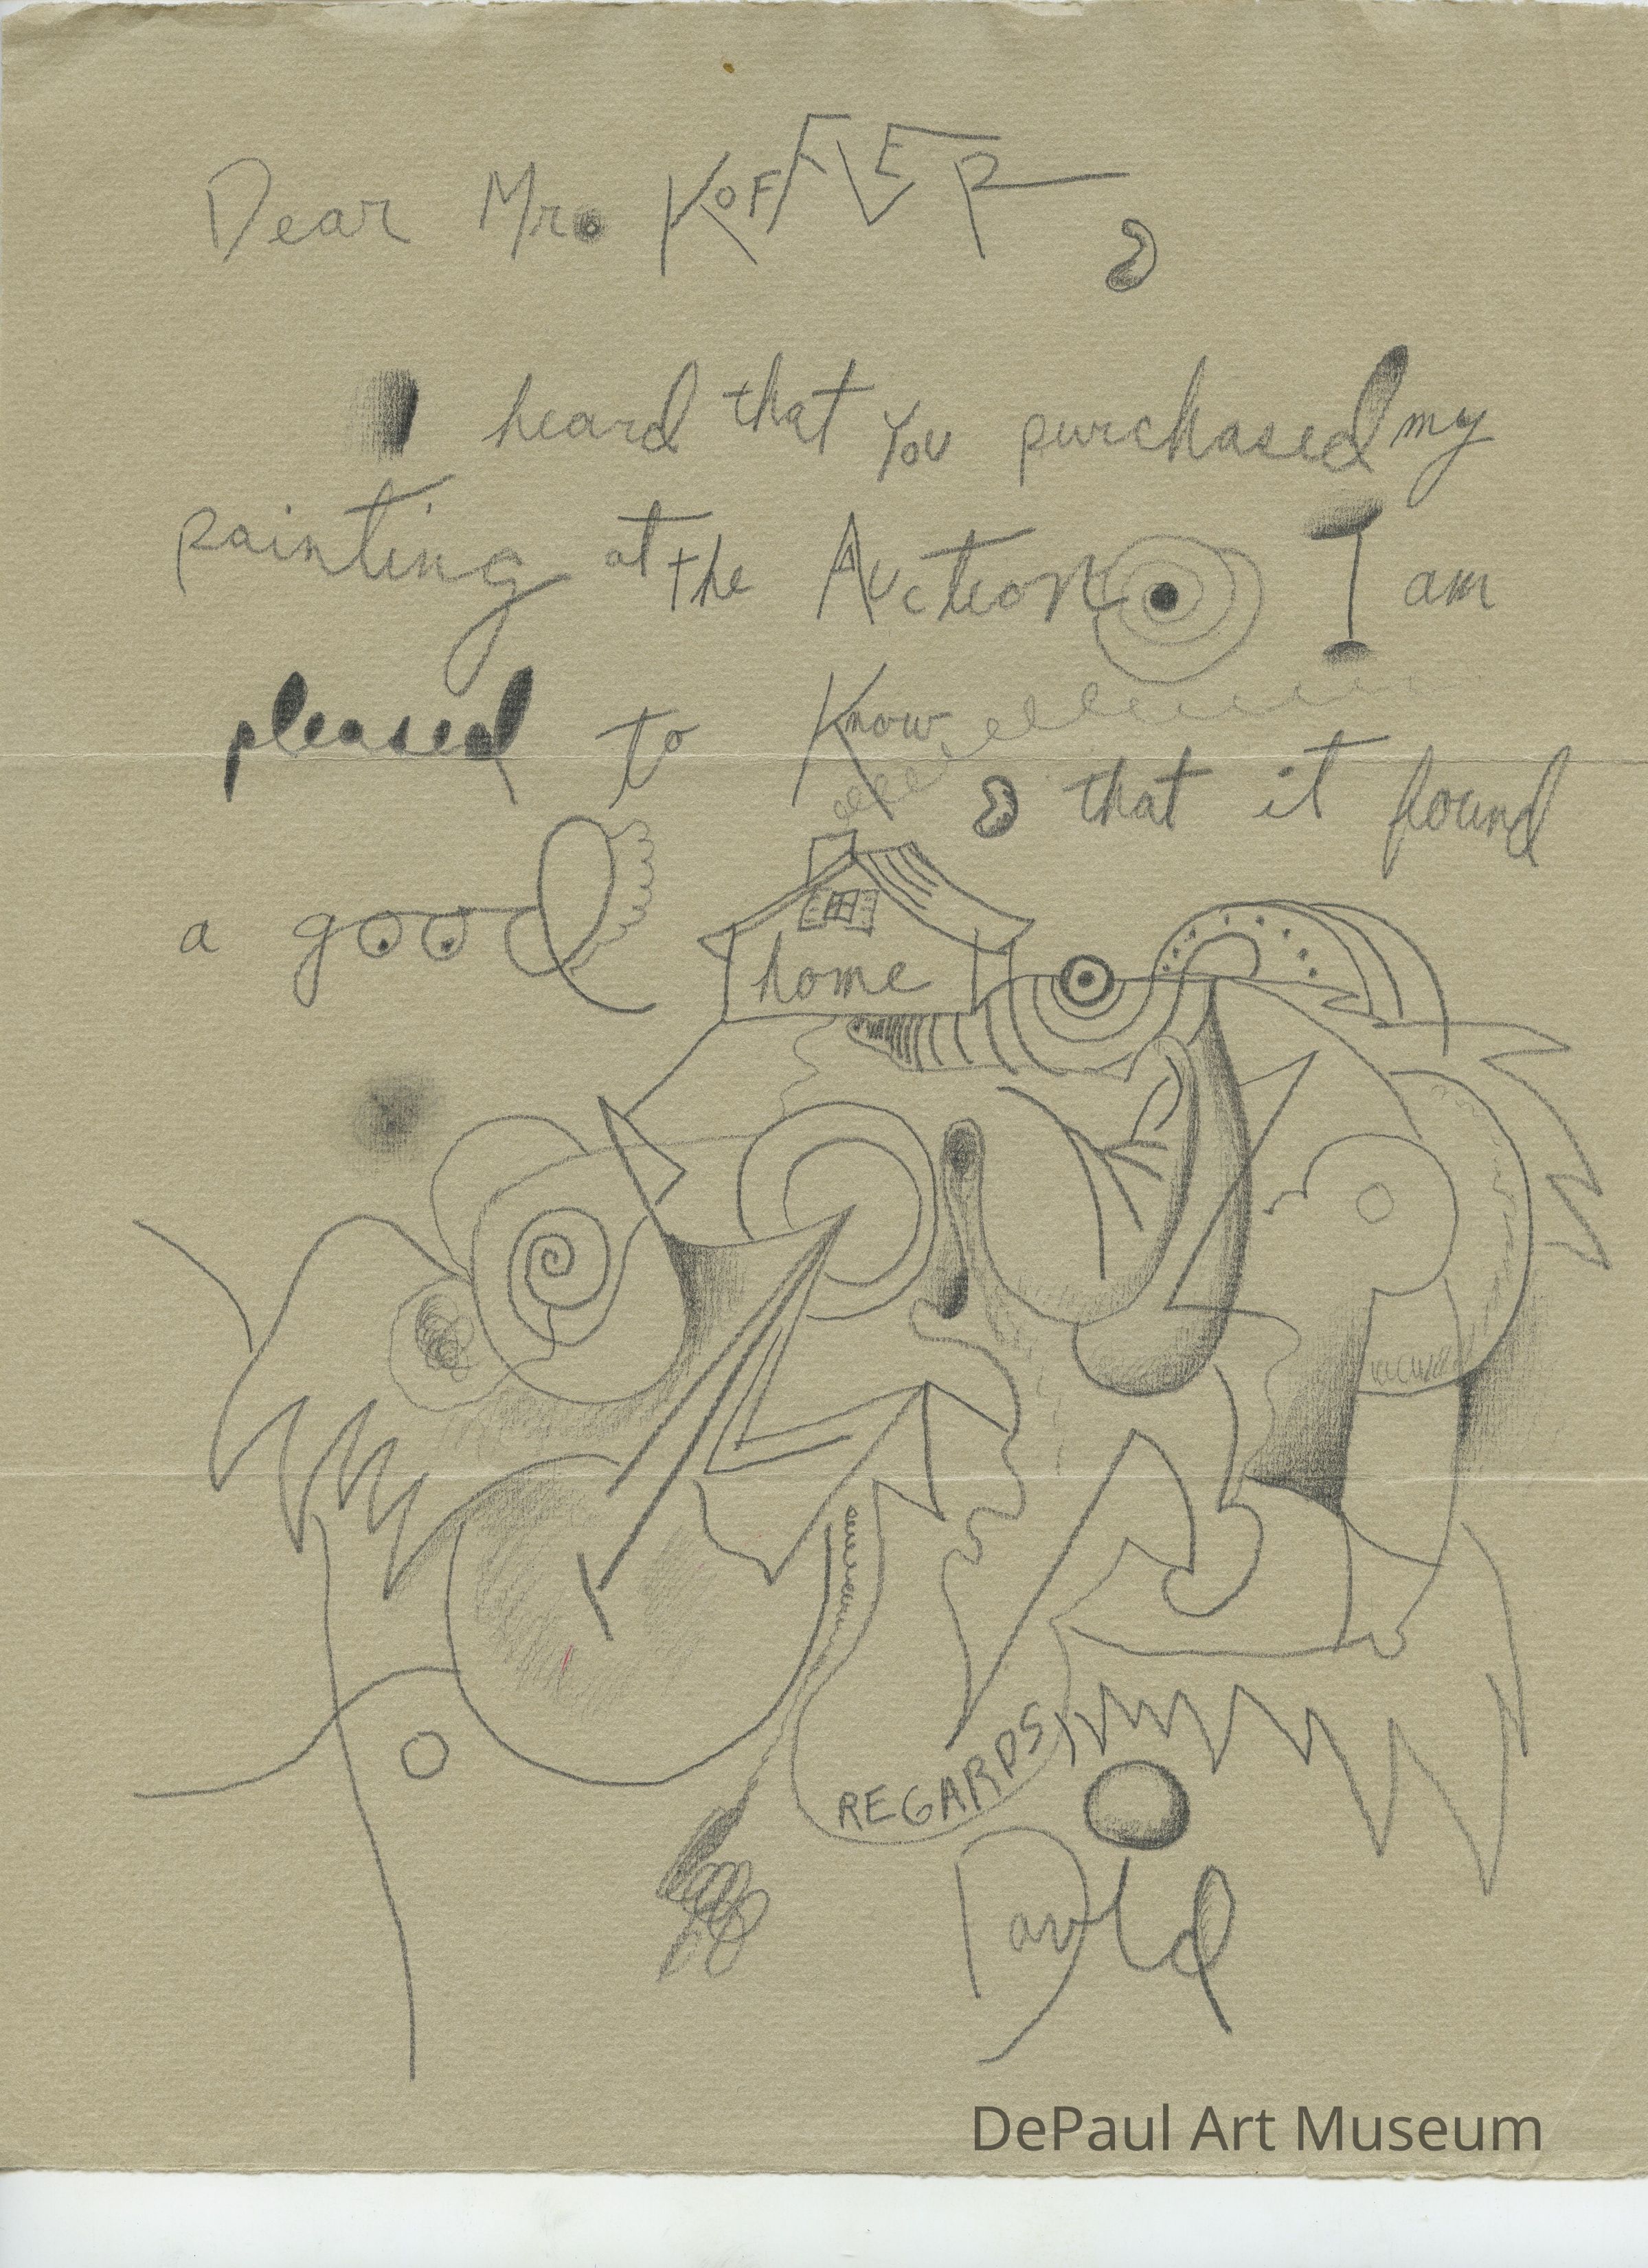 Dear Mr. KOFFLER,
I heard that you purchased my
painting at the Auction. I am
pleased to Know, that it found
a good home
REGARDS
David
DePaul Art Museum